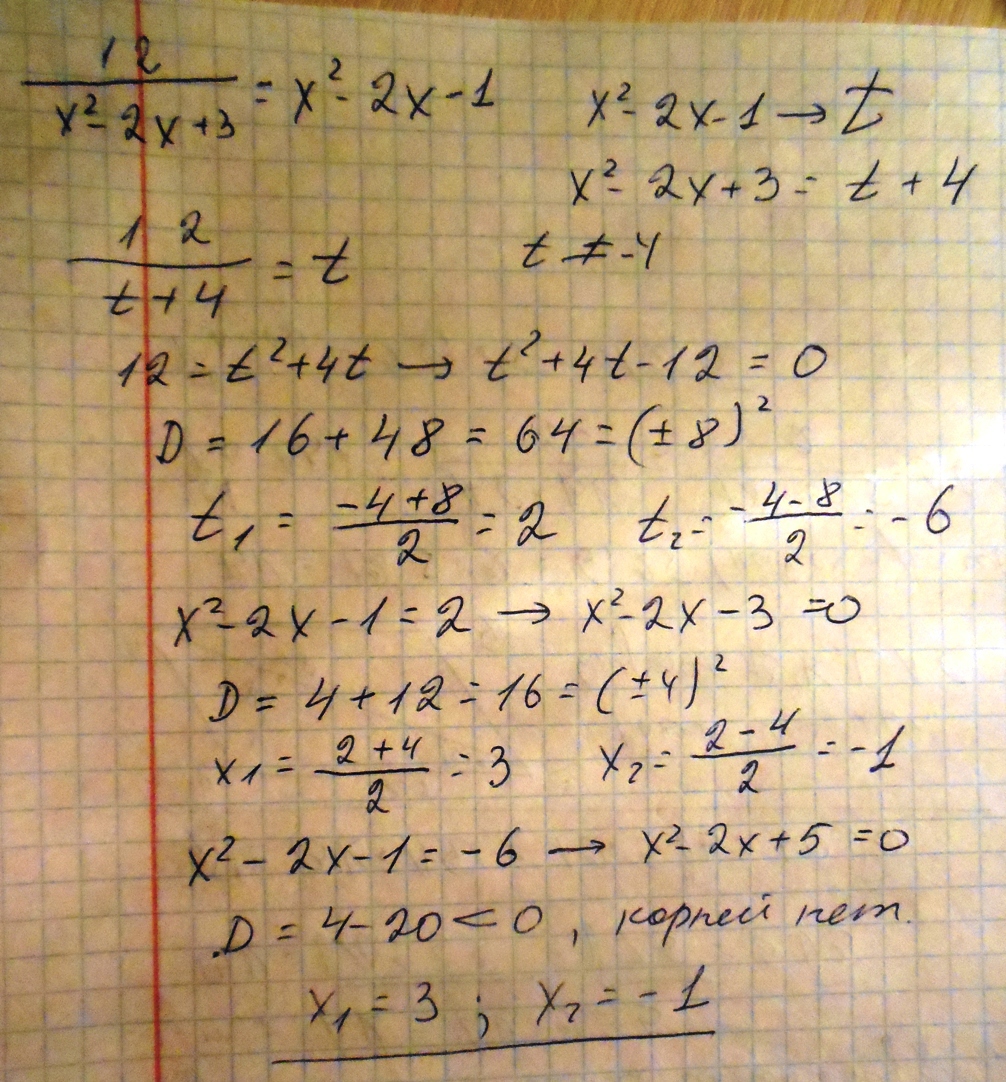 12/(x²-2x+3) = x²-2x-1    x²-2x-1 → t
x²-2x+3 = t+4
12/(t+4) = t    t ≠ -4
12 = t²+4t → t²+4t-12 = 0
D = 16+48 = 64 = (±8)²
t₁ = (-4+8)/2 = 2    t₂ = (-4-8)/2 = -6
x²-2x-1 = 2 → x²-2x-3 = 0
D = 4+12 = 16 = (±4)²
x₁ = (2+4)/2 = 3    x₂ = (2-4)/2 = -1
x²-2x-1 = -6 → x²-2x+5 = 0
D = 4-20 < 0, корней нет.
x₁ = 3 ; x₂ = -1